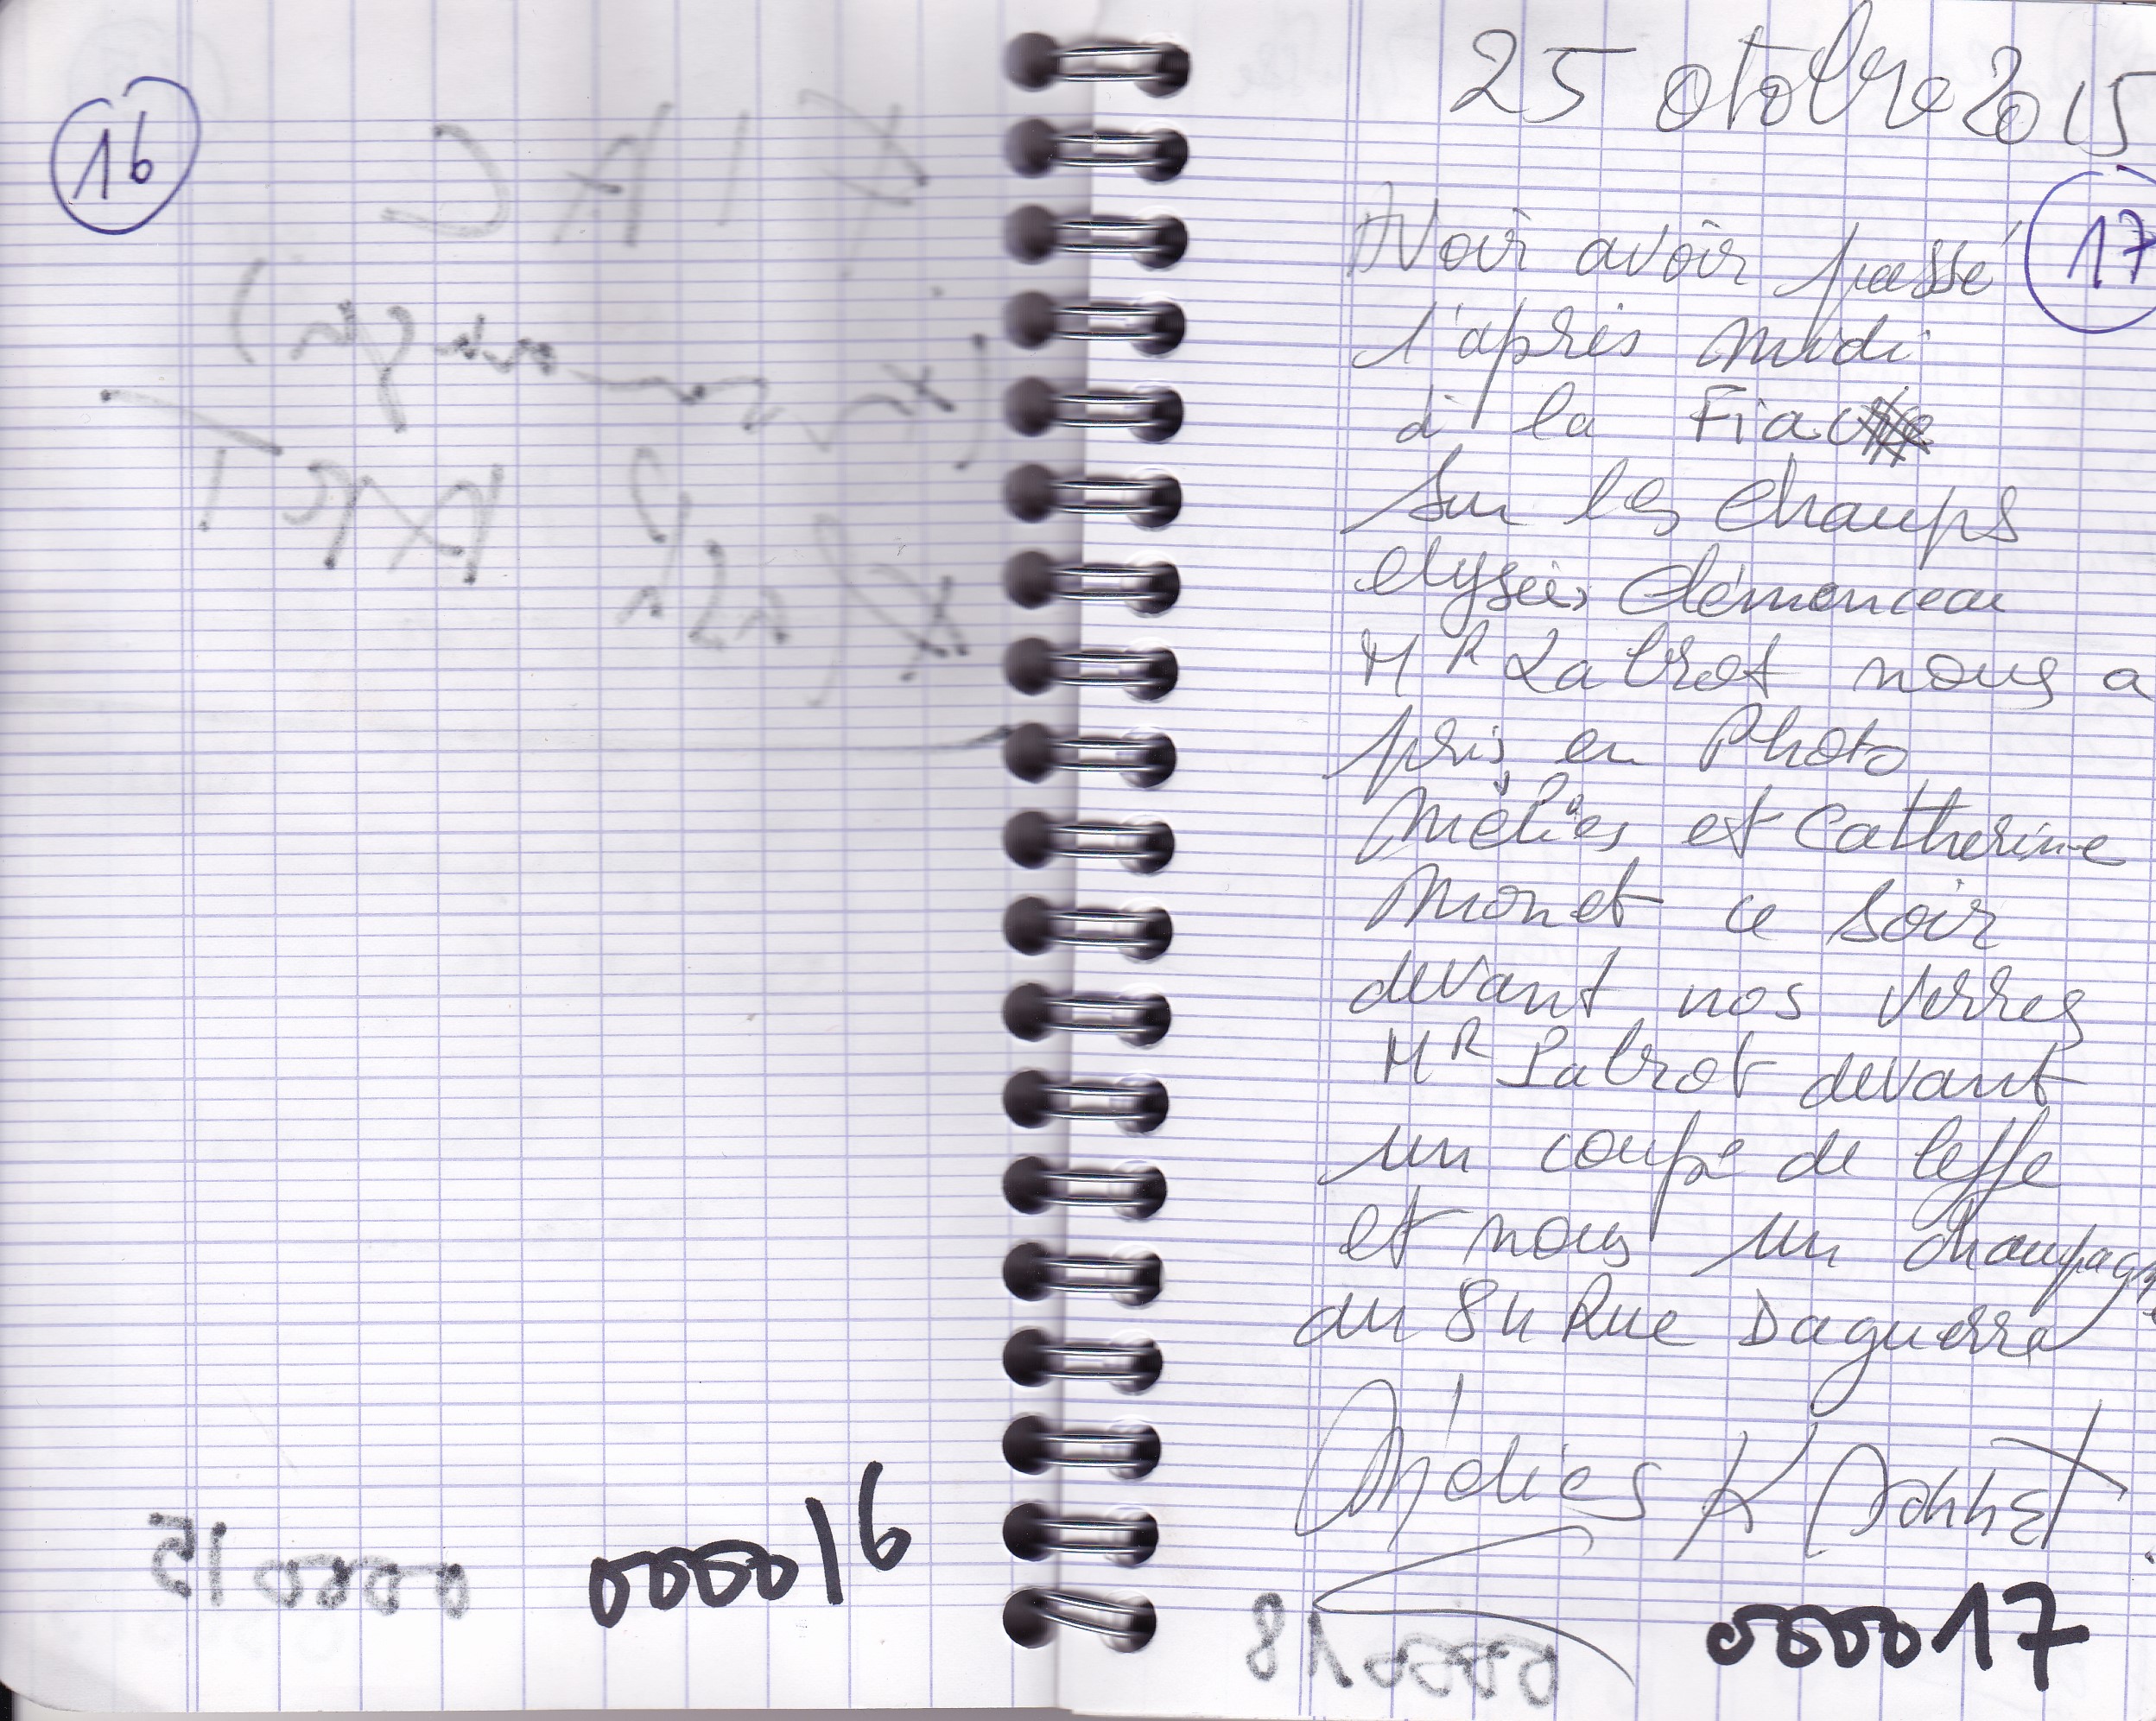 16
000016
25 otobre 2015
17
Avoir avoir passé
l'après midi
à la Fiac
sur les champs
elysées Clémenceau
MR Labrot nous a
pris en Photo
Méliès et Catherine
Monet ce soir
devant nos verres
MR Labrot devant
un coupe de leffe
et nous un champagne
au 84 Rue Daguerre
Méliès K
000017